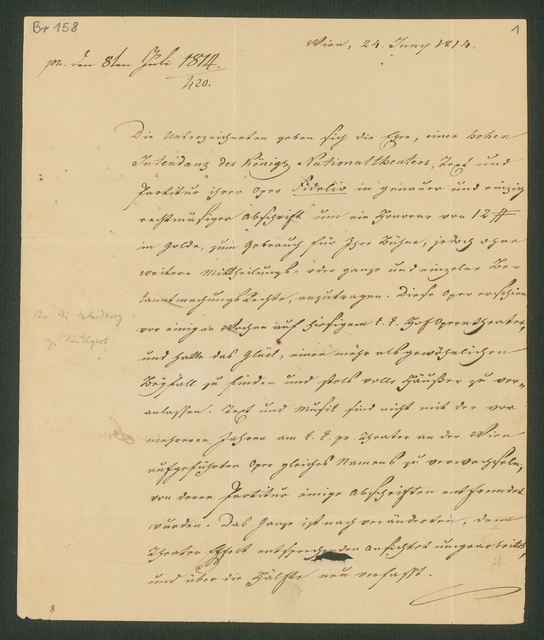 Br 158
1
Wien, 24. Juny 1814.
pr. den 8ten July 1814.
420.
Die Unterzeichneten geben sich die Ehre, einer hohen
Intendanz des Königl Nationaltheaters, Text und
Partitur ihrer Oper Fidelio in genauer und einzig
rechtmäßiger Abschrift um ein Honorar von 12 #
in Golde, zum Gebrauch für Ihre Bühne, jedoch ohne
weitere Mittheilungs- oder ganze und einzelne Be-
kanntmachungsRechte, anzutragen. Diese Oper erschien
vor einigen Wochen auf hiesigem k. k. Hof Operntheater,
und hatte das Glück, einen mehr als gewöhnlichen
Beyfall zu finden und stets volle Häußer zu ver-
anlassen. Text und Musik sind nicht mit der vor
mehreren Jahren am k. k. pr Theater an der Wien
aufgeführten Oper gleiches Namens zu verwechseln,
von deren Partitur einige Abschriften entfremdet
wurden. Das Ganze ist nach veränderten, dem
Theater Effekt entsprechenden Ansichten umgearbeitet,
und über die Hälfte neu verfasst.
An die Intendanz
zu Stuttgart.
8